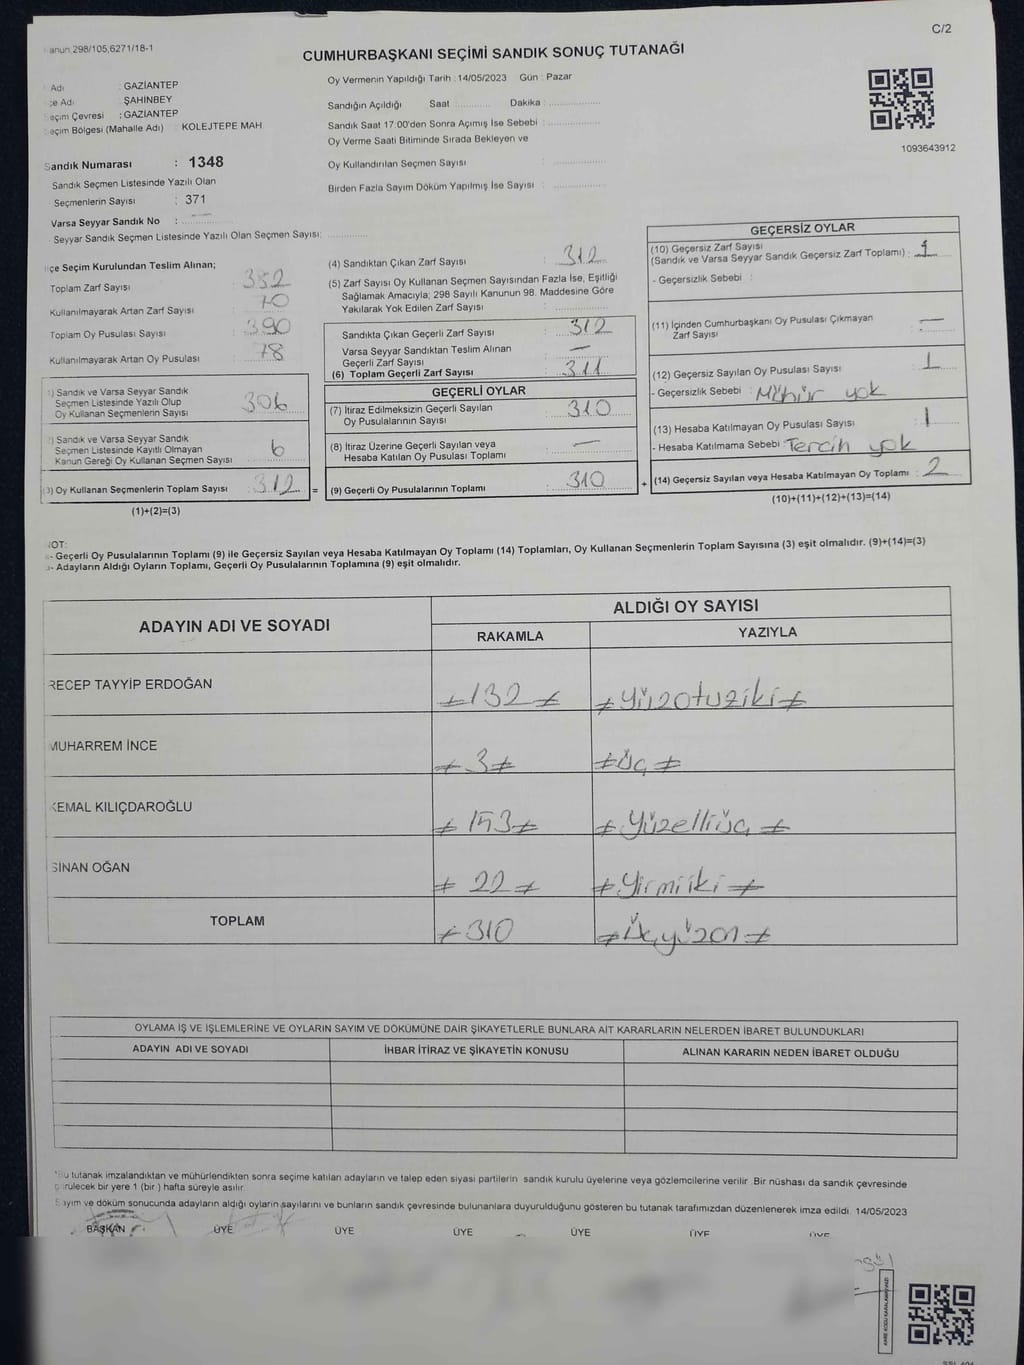 C/2
anun 298/105,6271/18-1
CUMHURBAŞKANI SEÇİMİ SANDIK SONUÇ TUTANAĞI
Adı : GAZİANTEP
çe Adı : ŞAHİNBEY
eçim Çevresi : GAZİANTEP
eçim Bölgesi (Mahalle Adı) : KOLEJTEPE MAH
Oy Vermenin Yapıldığı Tarih : 14/05/2023 Gün : Pazar
Sandığın Açıldığı Saat ............ Dakika : ................
Sandık Saat 17:00'den Sonra Açımış İse Sebebi : ................
Oy Verme Saati Bitiminde Sırada Bekleyen ve
Oy Kullandırılan Seçmen Sayısı : ................
Birden Fazla Sayım Döküm Yapılmış İse Sayısı : ................
1093643912
Sandık Numarası : 1348
Sandık Seçmen Listesinde Yazılı Olan
Seçmenlerin Sayısı : 371
Varsa Seyyar Sandık No : —
Seyyar Sandık Seçmen Listesinde Yazılı Olan Seçmen Sayısı: ............
lçe Seçim Kurulundan Teslim Alınan;
Toplam Zarf Sayısı : 382
Kullanılmayarak Artan Zarf Sayısı : 70
Toplam Oy Pusulası Sayısı : 390
Kullanılmayarak Artan Oy Pusulası : 78
) Sandık ve Varsa Seyyar Sandık
Seçmen Listesinde Yazılı Olup
Oy Kullanan Seçmenlerin Sayısı : 306
) Sandık ve Varsa Seyyar Sandık
Seçmen Listesinde Kayıtlı Olmayan
Kanun Gereği Oy Kullanan Seçmen Sayısı : 6
3) Oy Kullanan Seçmenlerin Toplam Sayısı : 312 =
(1)+(2)=(3)
(4) Sandıktan Çıkan Zarf Sayısı : 312
(5) Zarf Sayısı Oy Kullanan Seçmen Sayısından Fazla İse, Eşitliği
Sağlamak Amacıyla; 298 Sayılı Kanunun 98. Maddesine Göre
Yakılarak Yok Edilen Zarf Sayısı : ................
Sandıkta Çıkan Geçerli Zarf Sayısı : 312
Varsa Seyyar Sandıktan Teslim Alınan
Geçerli Zarf Sayısı : —
(6) Toplam Geçerli Zarf Sayısı : 311
GEÇERLİ OYLAR
(7) İtiraz Edilmeksizin Geçerli Sayılan
Oy Pusulalarının Sayısı : 310
(8) İtiraz Üzerine Geçerli Sayılan veya
Hesaba Katılan Oy Pusulası Toplamı : —
(9) Geçerli Oy Pusulalarının Toplamı : 310 +
GEÇERSİZ OYLAR
(10) Geçersiz Zarf Sayısı
(Sandık ve Varsa Seyyar Sandık Geçersiz Zarf Toplamı) : 1
- Geçersizlik Sebebi :
(11) İçinden Cumhurbaşkanı Oy Pusulası Çıkmayan
Zarf Sayısı : —
(12) Geçersiz Sayılan Oy Pusulası Sayısı : 1
- Geçersizlik Sebebi : Mühür yok
(13) Hesaba Katılmayan Oy Pusulası Sayısı : 1
- Hesaba Katılmama Sebebi : Tercih yok
(14) Geçersiz Sayılan veya Hesaba Katılmayan Oy Toplamı : 2
(10)+(11)+(12)+(13)=(14)
NOT:
- Geçerli Oy Pusulalarının Toplamı (9) ile Geçersiz Sayılan veya Hesaba Katılmayan Oy Toplamı (14) Toplamları, Oy Kullanan Seçmenlerin Toplam Sayısına (3) eşit olmalıdır. (9)+(14)=(3)
- Adayların Aldığı Oyların Toplamı, Geçerli Oy Pusulalarının Toplamına (9) eşit olmalıdır.
ADAYIN ADI VE SOYADI
ALDIĞI OY SAYISI
RAKAMLA YAZIYLA
RECEP TAYYİP ERDOĞAN ≠132≠ ≠Yüzotuziki≠
MUHARREM İNCE ≠3≠ ≠Üç≠
KEMAL KILIÇDAROĞLU ≠153≠ ≠Yüzelliüç≠
SİNAN OĞAN ≠22≠ ≠Yirmiiki≠
TOPLAM ≠310 ≠Üçyüzon≠
OYLAMA İŞ VE İŞLEMLERİNE VE OYLARIN SAYIM VE DÖKÜMÜNE DAİR ŞİKAYETLERLE BUNLARA AİT KARARLARIN NELERDEN İBARET BULUNDUKLARI
ADAYIN ADI VE SOYADI İHBAR İTİRAZ VE ŞİKAYETİN KONUSU ALINAN KARARIN NEDEN İBARET OLDUĞU
Bu tutanak imzalandıktan ve mühürlendikten sonra seçime katılan adayların ve talep eden siyasi partilerin sandık kurulu üyelerine veya gözlemcilerine verilir. Bir nüshası da sandık çevresinde
görülecek bir yere 1 (bir ) hafta süreyle asılır.
Sayım ve döküm sonucunda adayların aldığı oyların sayılarını ve bunların sandık çevresinde bulunanlara duyurulduğunu gösteren bu tutanak tarafımızdan düzenlenerek imza edildi. 14/05/2023
BAŞKAN ÜYE ÜYE ÜYE ÜYE ÜYE ÜYE